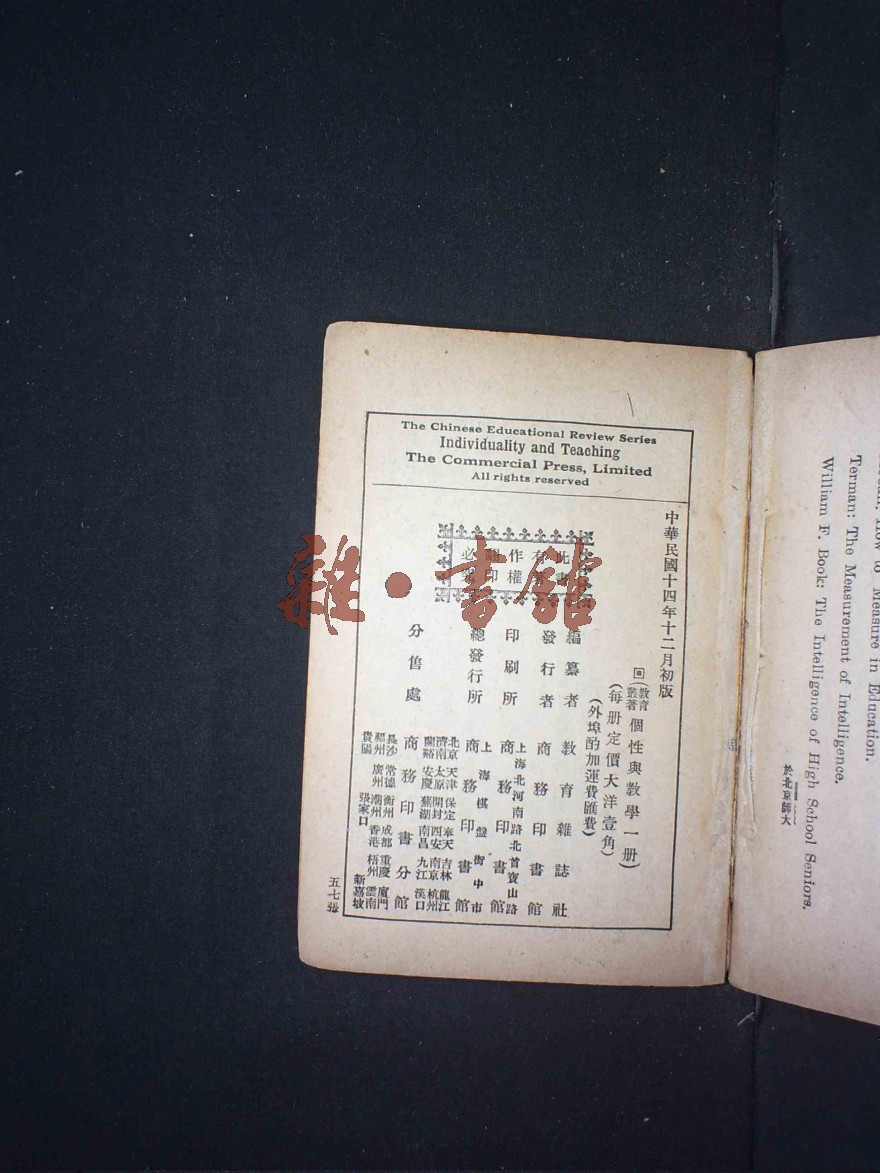 The Chinese Educational Review Series
Individuality and Teaching
The Commercial Press, Limited
All rights reserved
中華民國十四年十二月初版
(教育叢著個性與教學一册)
(每册定價大洋壹角)
(外埠酌加運費匯費)
此書
有著
作權
翻印
必究
編纂者 教育雜誌社
發行者 商務印書館
印刷所 上海北河南路北首寶山路 商務印書館
總發行所 上海棋盤街中市 商務印書館
分售處 商務印書分館
北京 天津 保定 奉天 吉林 龍江
濟南 太原 開封 西安 南京 杭州
蘭谿 安慶 蕪湖 南昌 九江 漢口
長沙 常德 衡州 成都 重慶 廈門
福州 廣州 潮州 香港 梧州 雲南
貴陽 張家口 新嘉坡
五七張
雜·書館
How to Measure in Education.
Terman: The Measurement of Intelligence.
William F. Book: The Intelligence of High School Seniors.
於北京師大